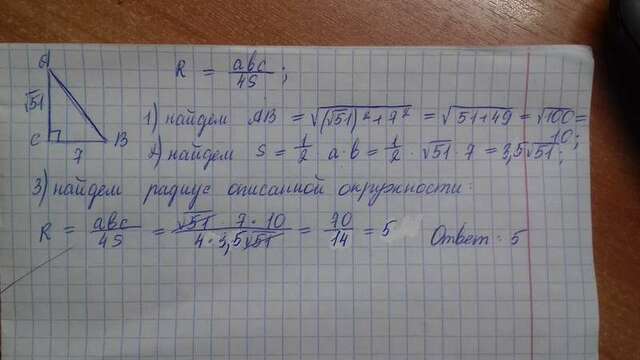 A
√51
C
7
B
R = abc/4S ;
1) найдем AB = √((√51)²+7²) = √(51+49) = √100 =
10;
2) найдем S = 1/2 a·b = 1/2 · √51 · 7 = 3,5√51;
3) найдем радиус описанной окружности:
R = abc/4S = √51 · 7 · 10/4 · 3,5√51 = 70/14 = 5 Ответ: 5